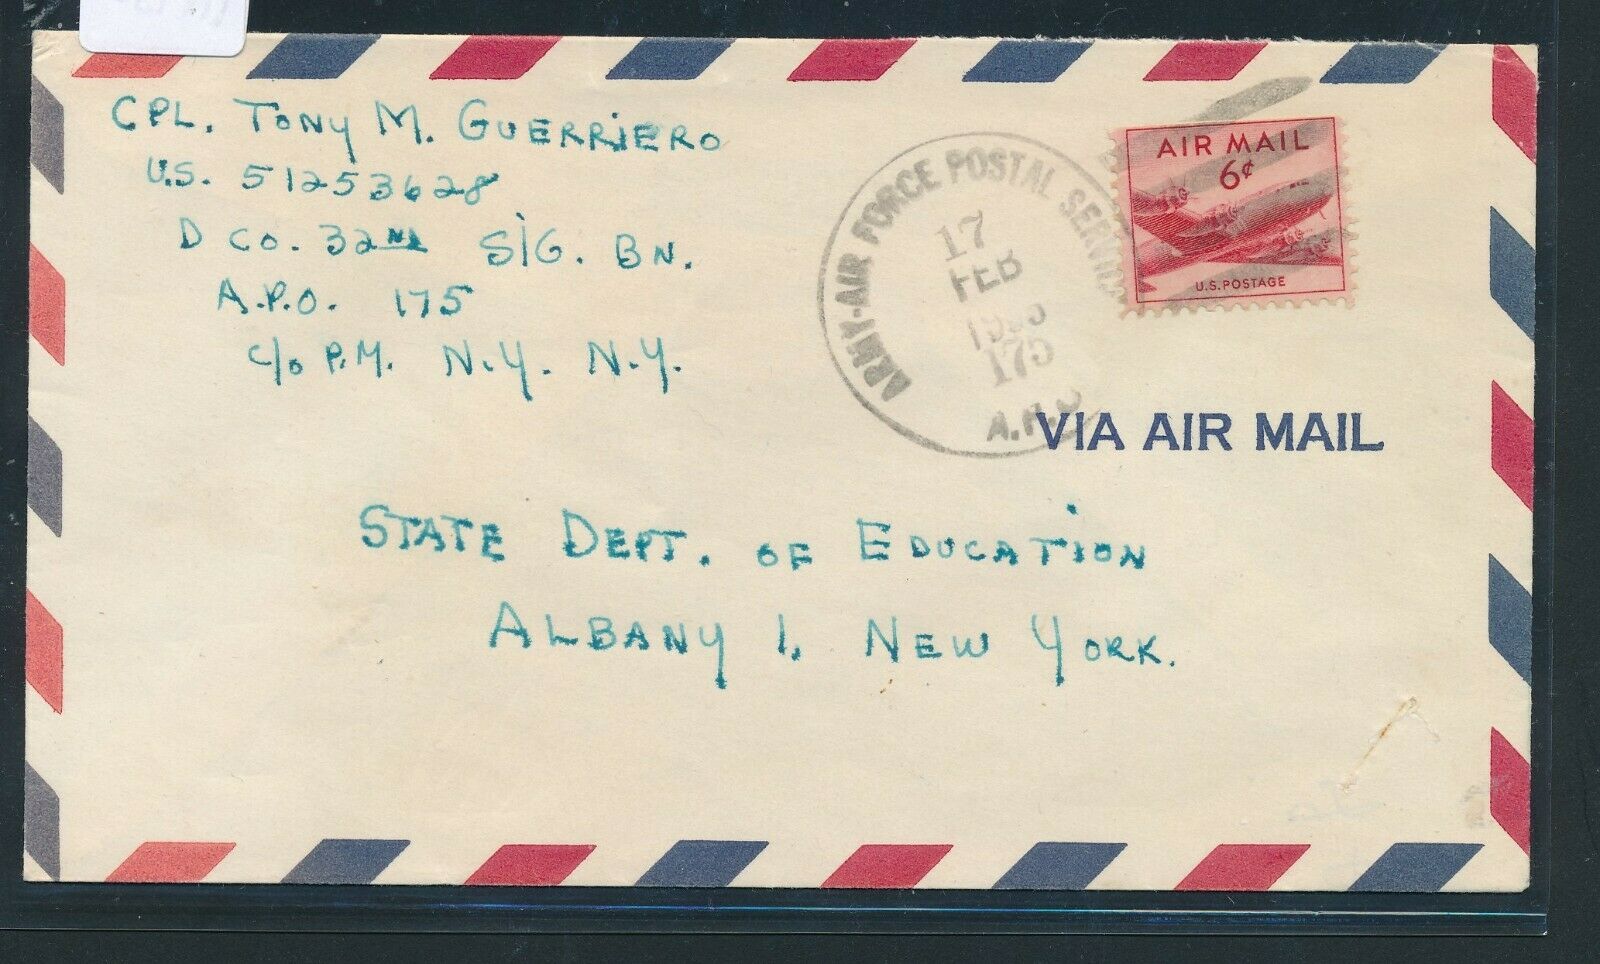 CPL. TONY M. GUERRIERO
U.S. 51253628
D CO. 32nd SIG. BN.
A.P.O. 175
c/o P.M. N.Y. N.Y.
ARMY-AIR FORCE POSTAL SERVICE
17
FEB
175
A.P.O
AIR MAIL
6¢
U.S. POSTAGE
VIA AIR MAIL
STATE DEPT. OF EDUCATION
ALBANY 1, NEW YORK.